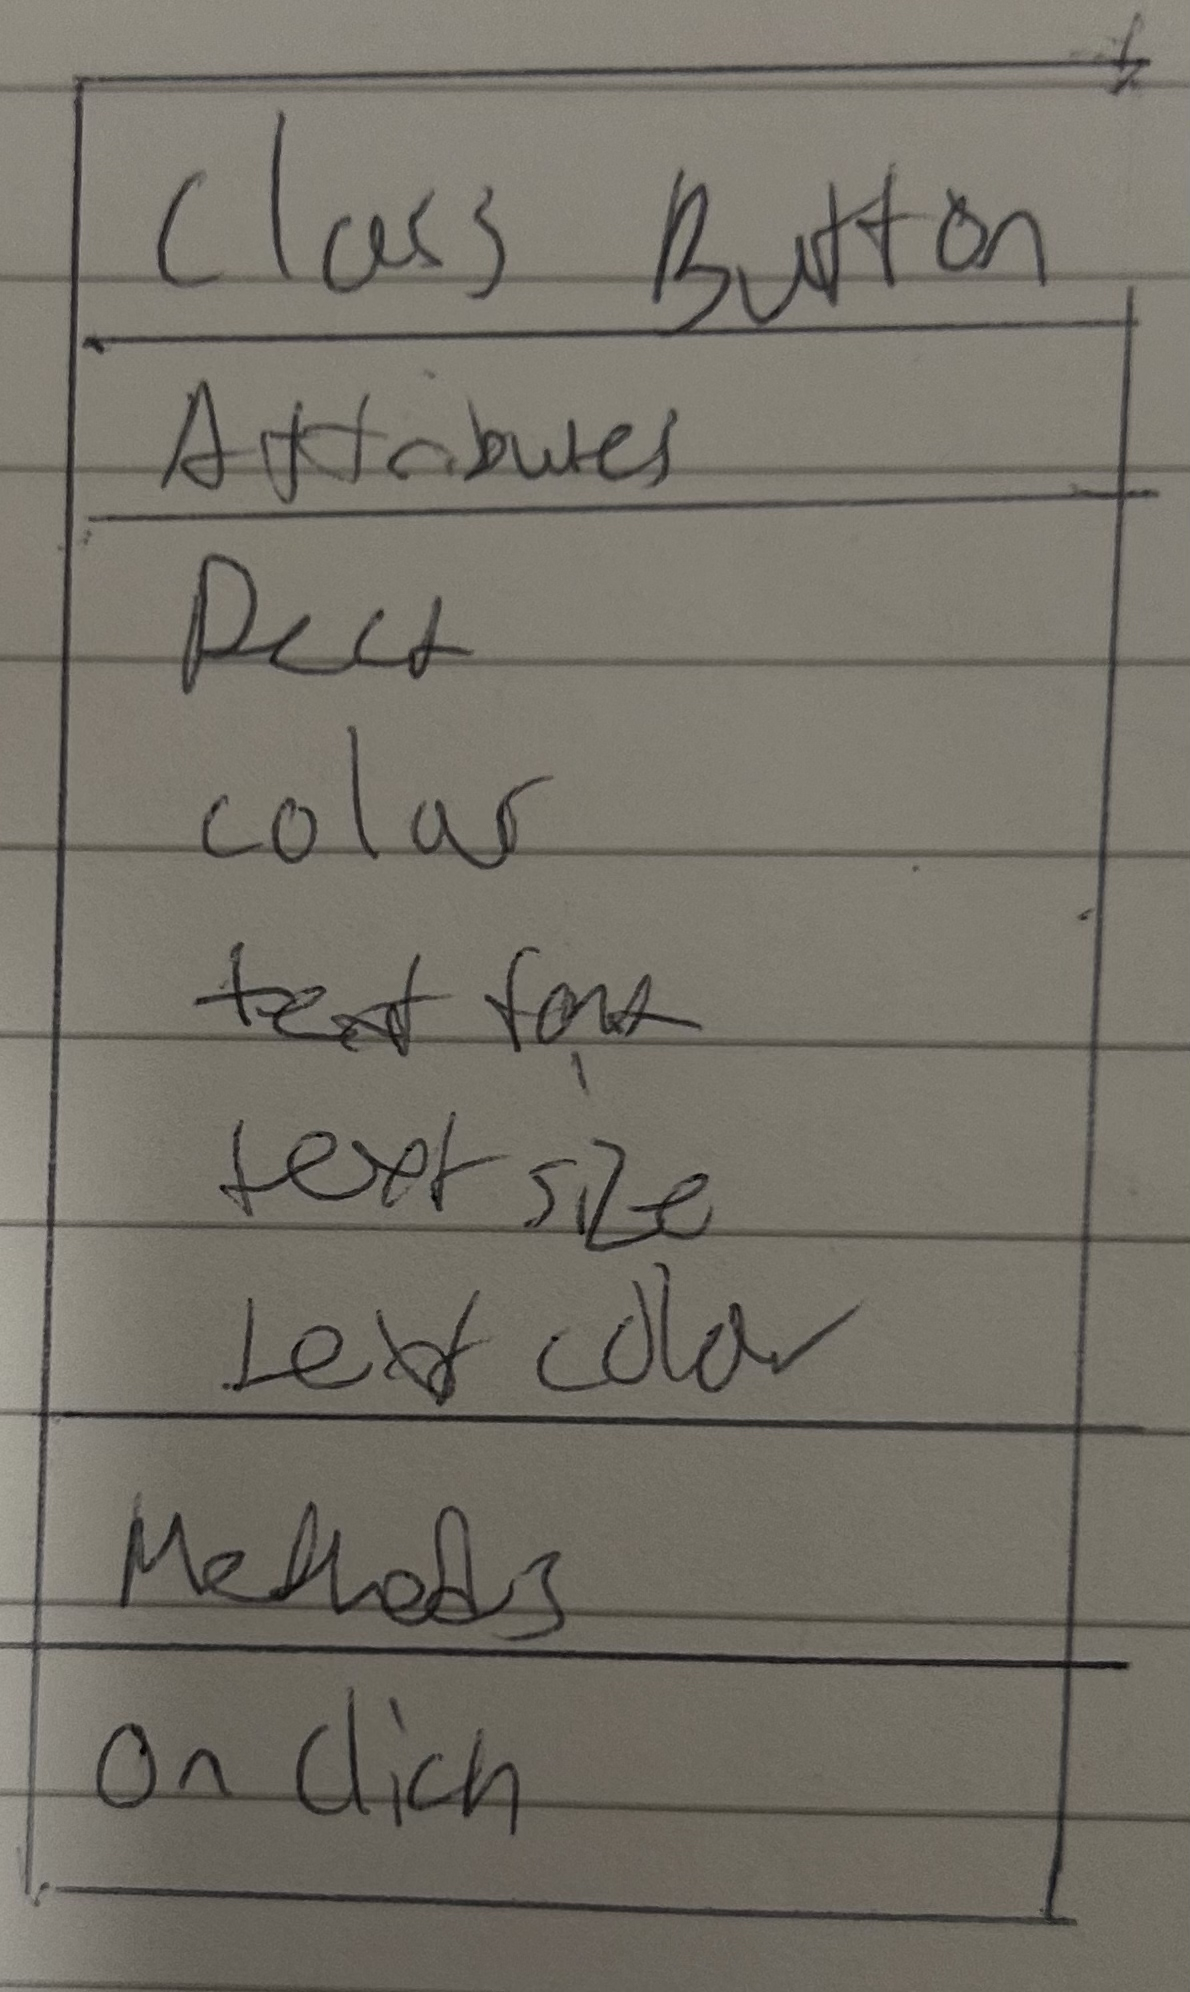 Class Button
Attributes
Rect
color
text font
text size
text color
Methods
On click